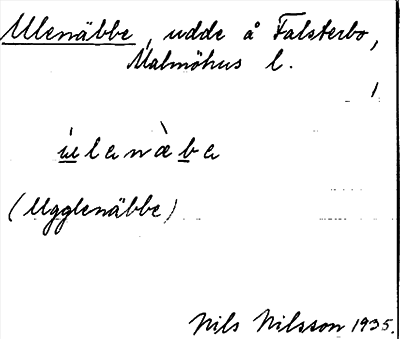 Ulenäbbe, udde å Falsterbo,
Malmöhus l.
1
ùlenàbe
(Ugglenäbbe)
Nils Nilsson 1935.